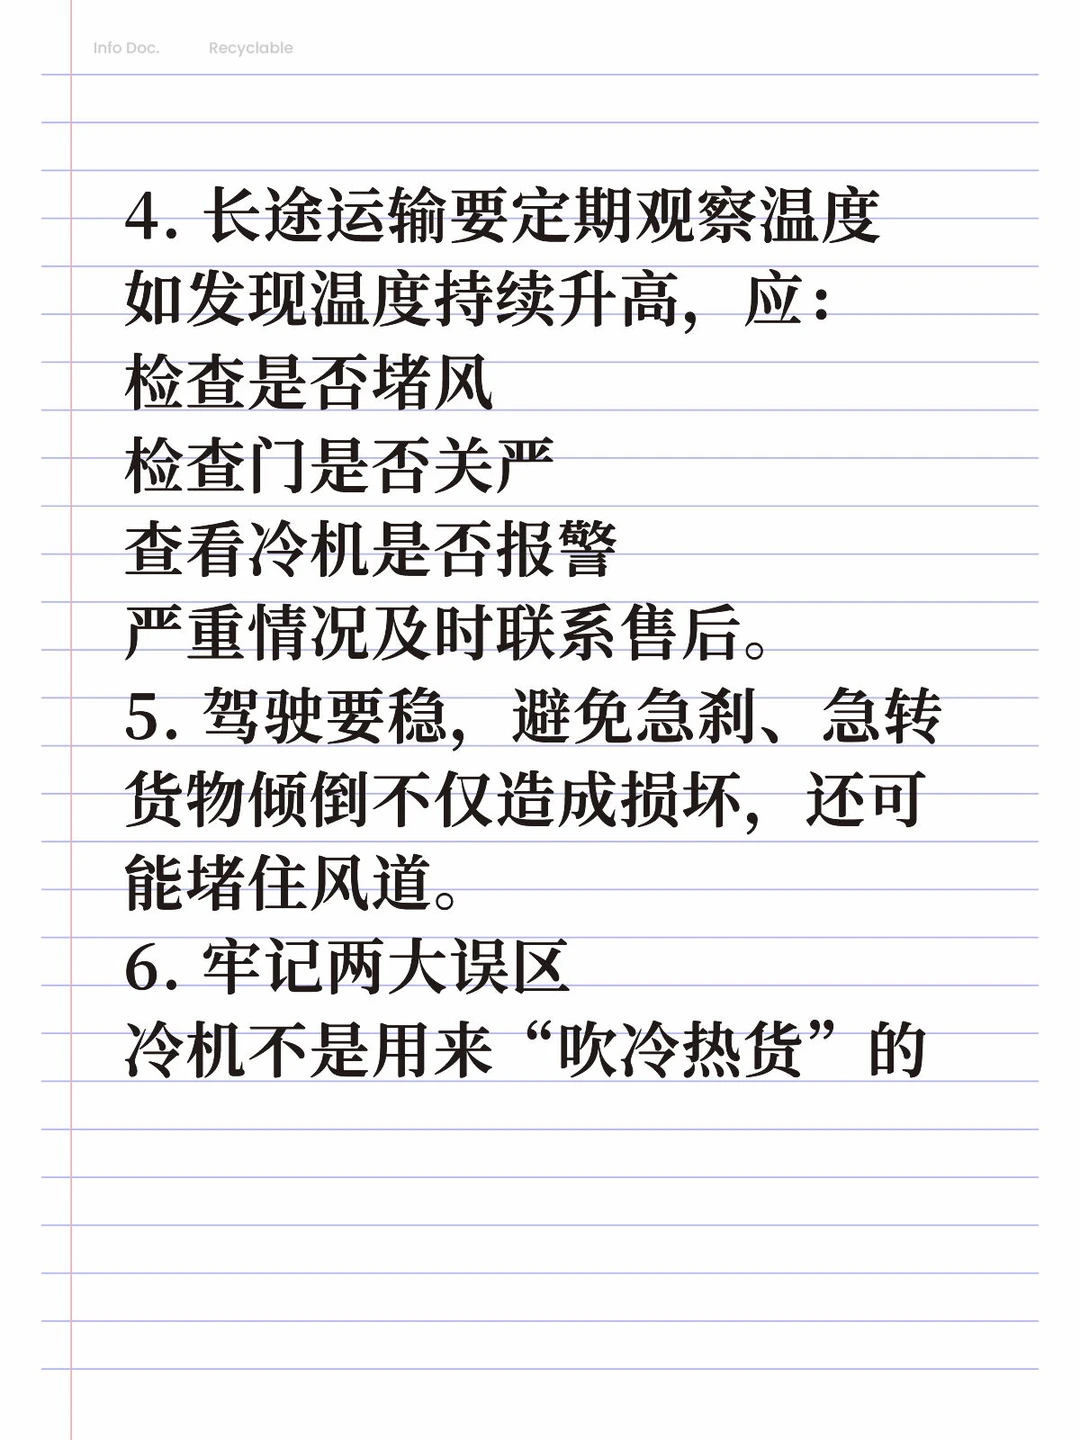 Info Doc. Recyclable
4. 长途运输要定期观察温度
如发现温度持续升高，应：
检查是否堵风
检查门是否关严
查看冷机是否报警
严重情况及时联系售后。
5. 驾驶要稳，避免急刹、急转
货物倾倒不仅造成损坏，还可
能堵住风道。
6. 牢记两大误区
冷机不是用来“吹冷热货”的